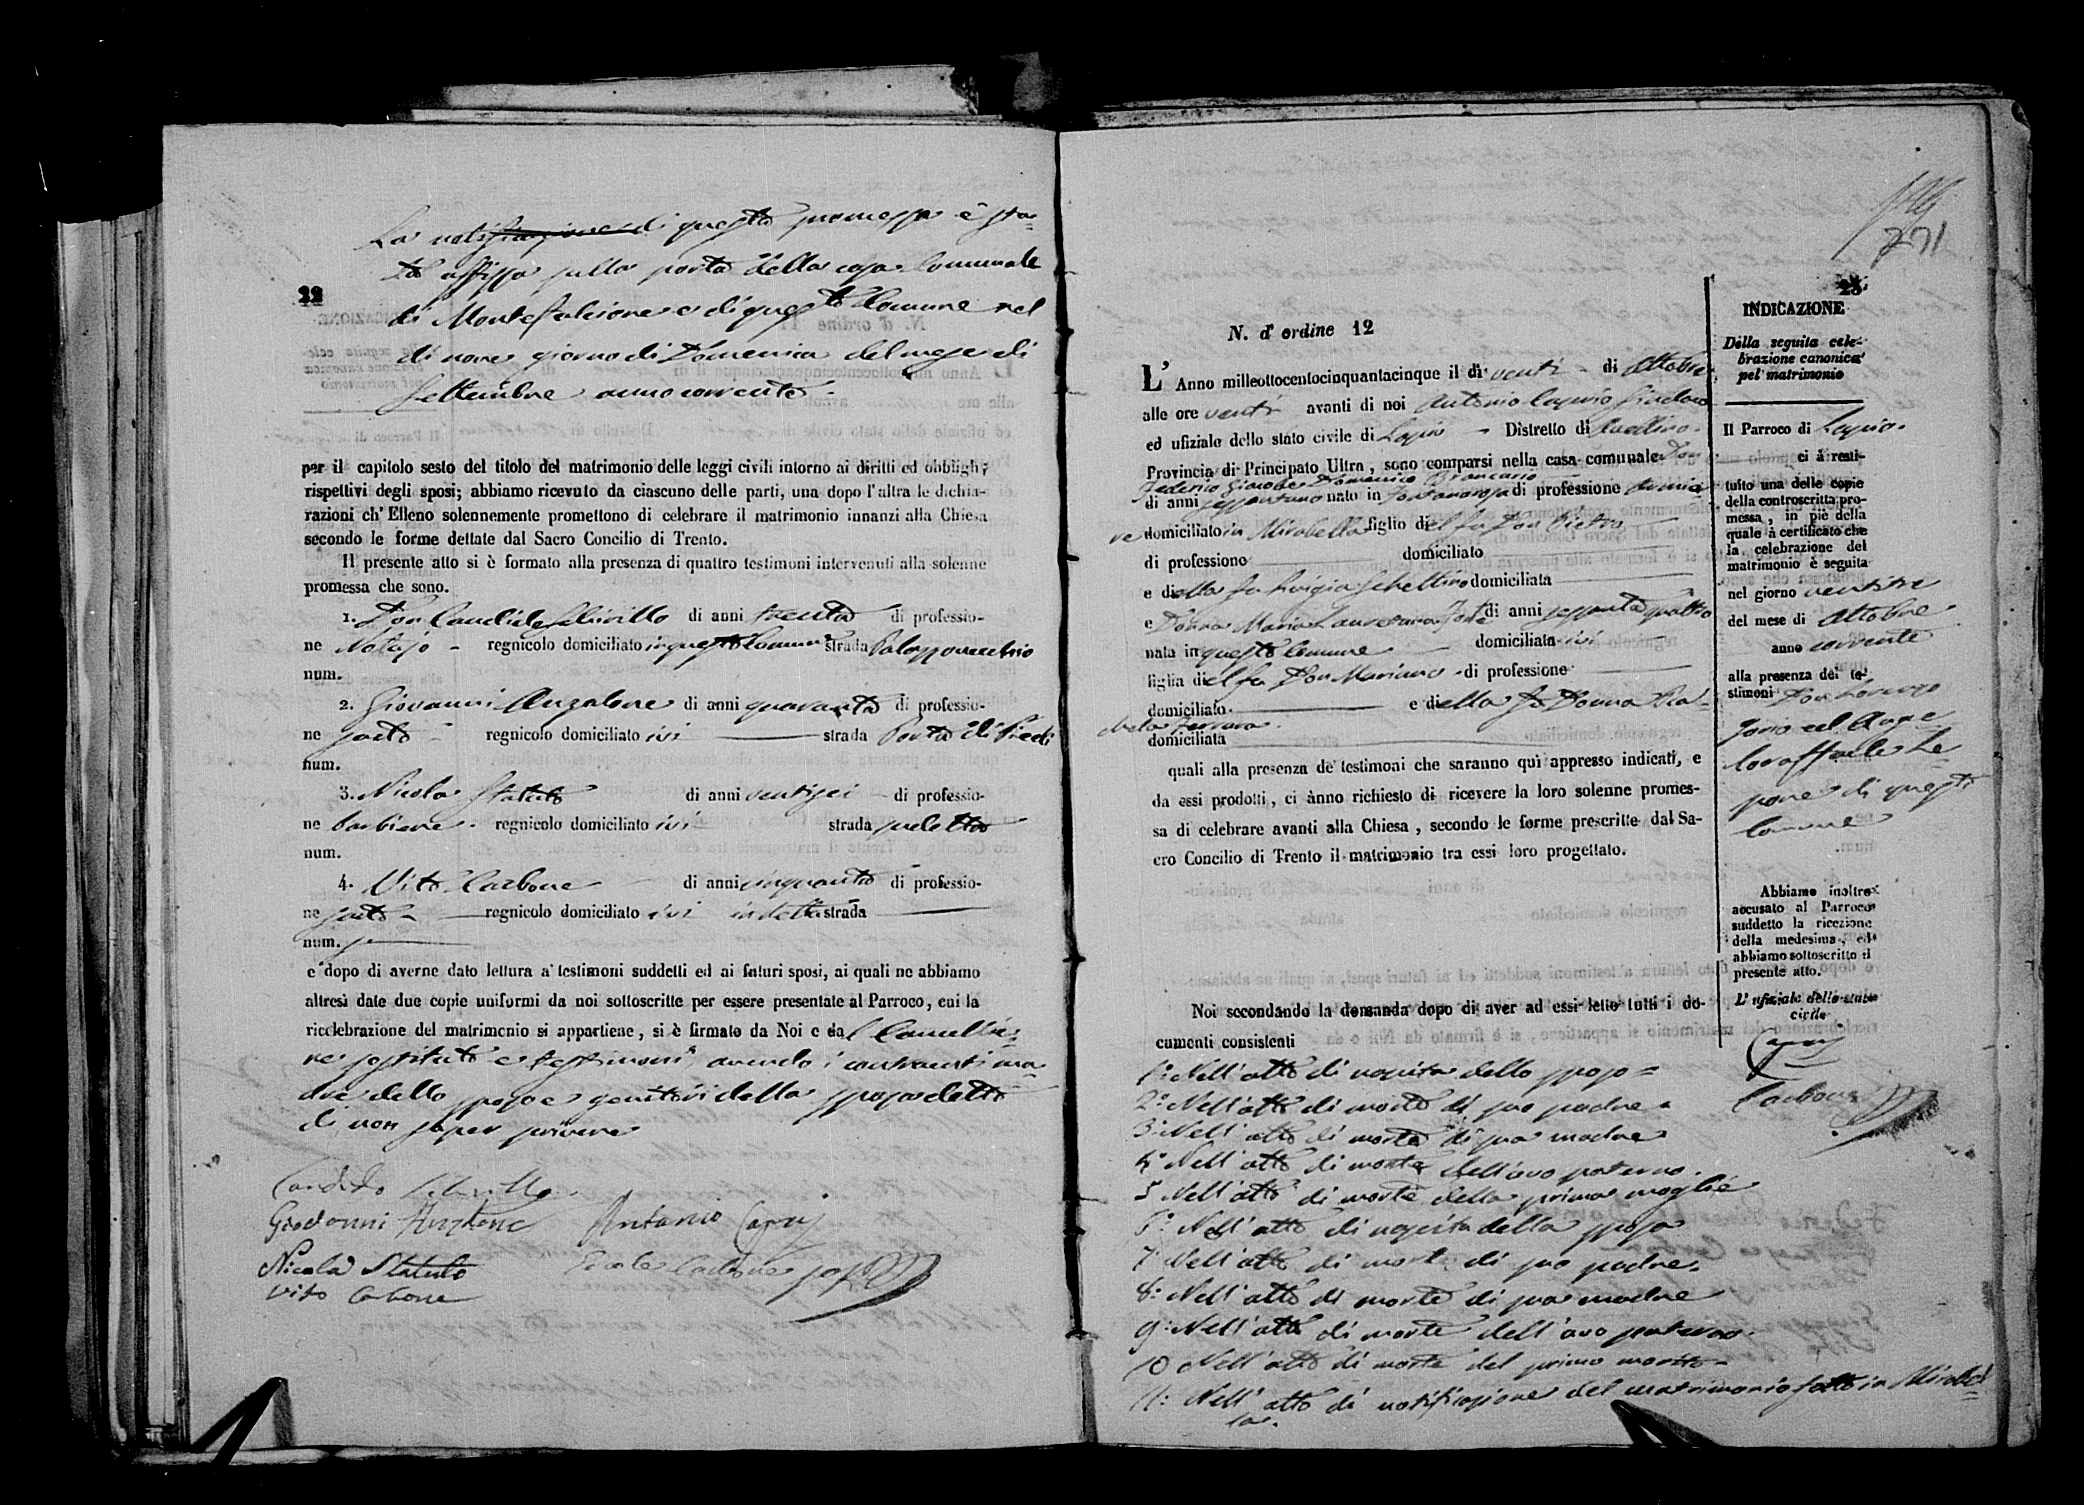 22
La notificazione di questa promessa è sta=
ta affissa sulla porta della casa Comunale
di Montefalcione e di questo Comune nel
di nove giorno di Domenica del mese di
Settembre anno corrente
per il capitolo sesto del titolo del matrimonio delle leggi civili intorno ai diritti ed obblighi
rispettivi degli sposi; abbiamo ricevuto da ciascuno delle parti, una dopo l'altra le dichia-
razioni ch' Elleno solennemente promettono di celebrare il matrimonio innanzi alla Chiesa
secondo le forme dettate dal Sacro Concilio di Trento.
Il presente atto si è formato alla presenza di quattro testimoni intervenuti alla solenne
promessa che sono.
1. Don Candido di anni trenta di professio-
ne Notajo regnicolo domiciliato in questo Comune strada Palazzovecchio
num.
2. Giovanni Anzalone di anni quaranta di professio-
ne sarto regnicolo domiciliato ivi strada Porta di Piedi
num.
3. Nicola Statuto di anni ventisei di professio-
ne barbiere regnicolo domiciliato ivi strada
num.
4. Vito Carbone di anni cinquanta di professio-
ne sarto regnicolo domiciliato ivi in detta strada
num.
e dopo di averne dato lettura a' testimoni suddetti ed ai futuri sposi, ai quali ne abbiamo
altresì date due copie uniformi da noi sottoscritte per essere presentate al Parroco, cui la
ricelebrazione del matrimonio si appartiene, si è firmato da Noi e dal Cancellie=
re sostituto e testimoni, avendo i contraenti ma=
dre dello sposo e genitori della sposa detto
di non saper scrivere
Candido
Giovanni Anzalone Antonio Caprij
Nicola Statuto Carbone
Vito Carbone
771
23
N. d' ordine 12
L' Anno milleottocentocinquantacinque il dì venti di Ottobre
alle ore venti avanti di noi Antonio Caprio Sindaco
ed ufiziale dello stato civile di Lapio Distretto di Avellino
Provincia di Principato Ultra, sono comparsi nella casa comunale Don
Federico Giacobe Domenico Brancario
di anni sessantuno nato in Fontanarosa di professione
domiciliato in Mirabella figlio del fu Don Pietro
di professione domiciliato
e della fu Luigia Schettino domiciliata
e Donna Maria Lauretana di anni sessantaquattro
nata in questo Comune domiciliata ivi
figlia del fu Don Mariano di professione
domiciliato e della fu Donna
domiciliata
quali alla presenza de' testimoni che saranno quì appresso indicati, e
da essi prodotti, ci ànno richiesto di ricevere la loro solenne promes-
sa di celebrare avanti alla Chiesa, secondo le forme prescritte dal Sa-
cro Concilio di Trento il matrimonio tra essi loro progettato.
Noi secondando la domanda dopo di aver ad essi letto tutti i do-
cumenti consistenti
1° Nell'atto di nascita dello sposo=
2° Nell'atto di morte di suo padre
3° Nell'atto di morte di sua madre
4° Nell'atto di morte dell'avo paterno.
5 Nell'atto di morte della prima moglie
6° Nell'atto di nascita della sposa
7° Nell'atto di morte di suo padre
8° Nell'atto di morte di sua madre
9° Nell'atto di morte dell'avo paterno
10 Nell'atto di morte del primo marito
11° Nell'atto di notificazione del matrimonio fatto in Mirabel=
la.
INDICAZIONE
Della seguita cele-
brazione canonica
pel matrimonio
Il Parroco di Lapio
ci à resti-
tuito una delle copie
della controscritta pro-
messa, in piè della
quale à certificato che
la celebrazione del
matrimonio è seguita
nel giorno ventitre
del mese di Ottobre
anno corrente
alla presenza dei te-
stimoni Don Lorenzo
ed Ange
loraffaele
di questo
Comune
Abbiamo inoltre
accusato al Parroco
suddetto la ricezione
della medesima, ed
abbiamo sottoscritto il
presente atto.
L' ufiziale dello stato
civile
Caprij
Carbone